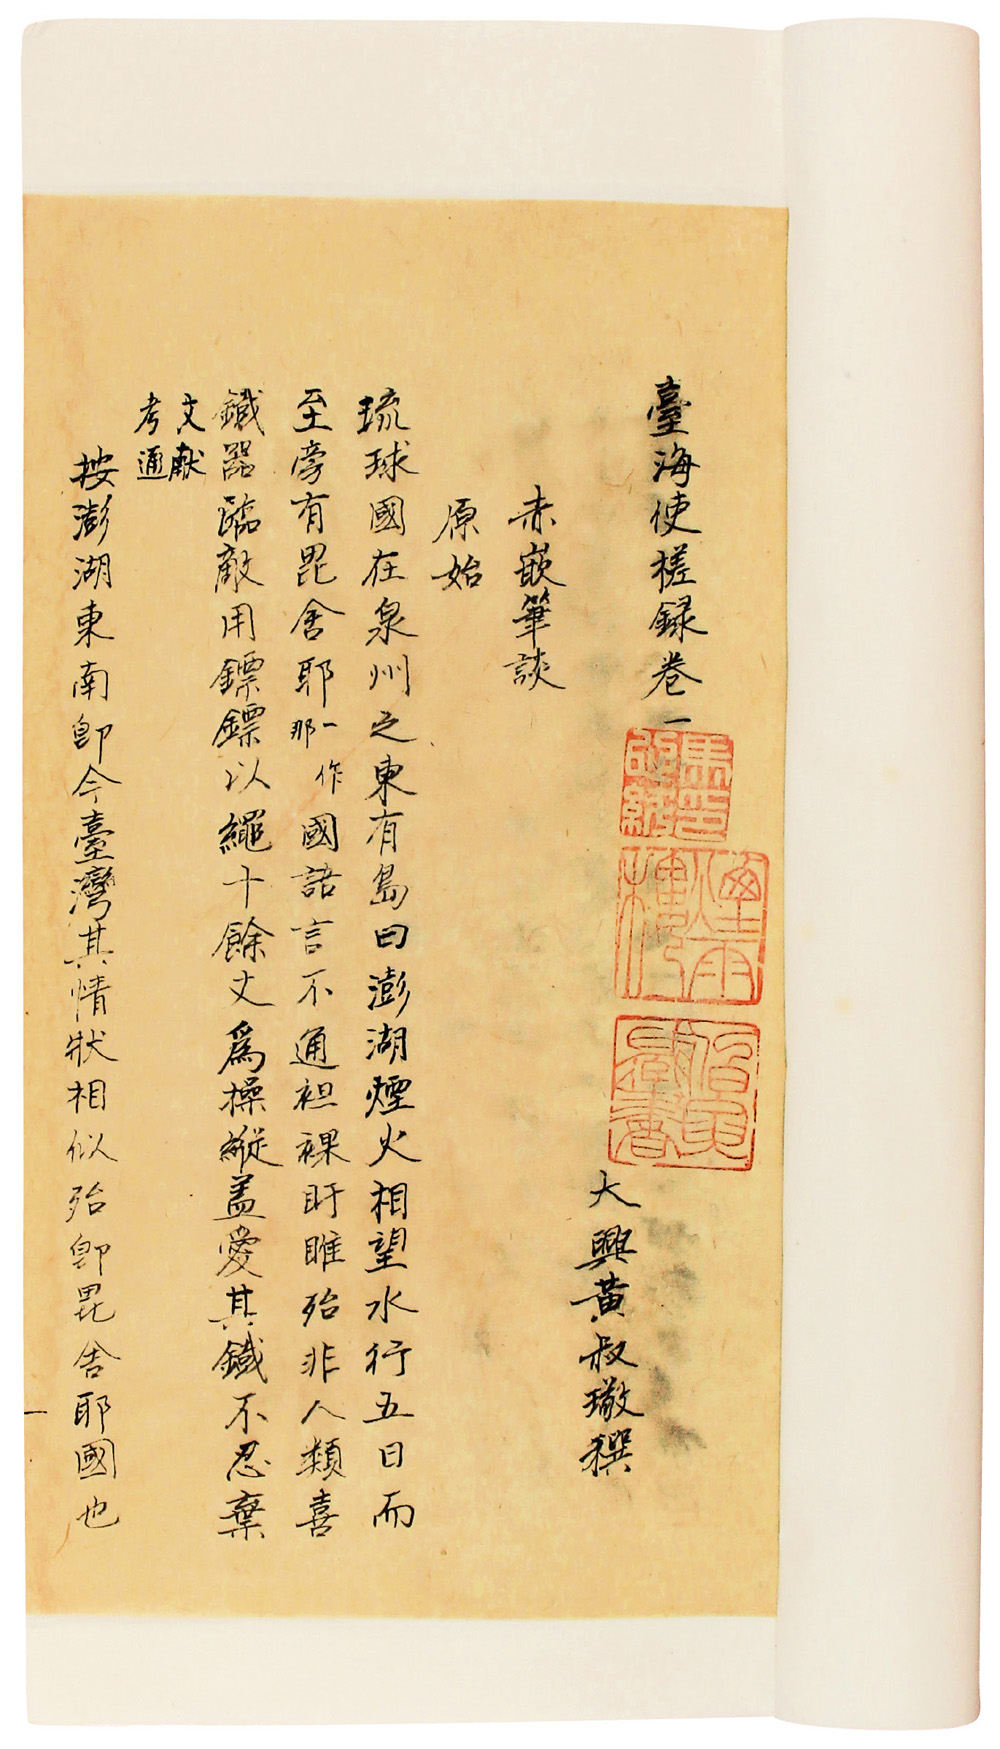 臺海使槎録卷一
大興黃叔璥撰
赤嵌筆談
原始
琉球國在泉州之東有島曰澎湖煙火相望水行五日而
至旁有毘舍耶一作那國語言不通袒裸盱睢殆非人類喜
鐵器臨敵用鏢鏢以繩十餘丈為操縱蓋愛其鐵不忍棄
文獻通考
按澎湖東南卽今臺灣其情狀相似殆卽毘舍耶國也